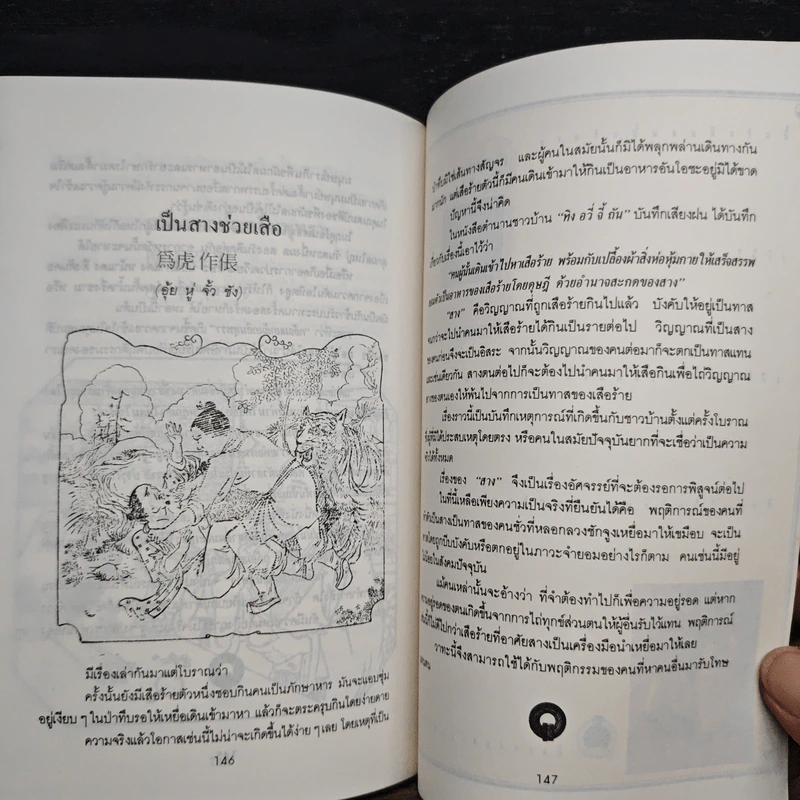 เป็นสางช่วยเสือ
爲虎作倀
(อุ้ย หู่ จั้ว ชัง)
มีเรื่องเล่ากันมาแต่โบราณว่า
ครั้งนั้นยังมีเสือร้ายตัวหนึ่งชอบกินคนเป็นภักษาหาร มันจะแอบซุ่ม
อยู่เงียบ ๆ ในป่าทึบรอให้เหยื่อเดินเข้ามาหา แล้วก็จะตระครุบกินโดยง่ายดาย
ความจริงแล้วโอกาสเช่นนี้ไม่น่าจะเกิดขึ้นได้ง่าย ๆ เลย โดยเหตุที่เป็น
146
ป่าทึบมิใช่เส้นทางสัญจร และผู้คนในสมัยนั้นก็มิได้พลุกพล่านเดินทางกัน
มากนัก แต่เสือร้ายตัวนี้ก็มีคนเดินเข้ามาให้กินเป็นอาหารอันโอชะอยู่มิได้ขาด
ปัญหานี้จึงน่าคิด
ในหนังสือตำนานชาวบ้าน "ทิง อวี่ จี้ ถัน" บันทึกเสียงฝน ได้บันทึก
เกี่ยวกับเรื่องนี้เอาไว้ว่า
"คนผู้นั้นเดินเข้าไปหาเสือร้าย พร้อมกับเปลื้องผ้าสิ่งห่อหุ้มกายให้เสร็จสรรพ
เป็นอาหารของเสือร้ายโดยดุษฎี ด้วยอำนาจสะกดของสาง"
"สาง" คือวิญญาณที่ถูกเสือร้ายกินไปแล้ว บังคับให้อยู่เป็นทาส
จนกว่าจะไปนำคนมาให้เสือร้ายได้กินเป็นรายต่อไป วิญญาณที่เป็นสาง
ของคนก่อนจึงจะเป็นอิสระ จากนั้นวิญญาณของคนต่อมาก็จะตกเป็นทาสแทน
และเช่นเดียวกัน สางตนต่อไปก็จะต้องไปนำคนมาให้เสือกินเพื่อไถ่วิญญาณ
ของตนเองให้พ้นไปจากการเป็นทาสของเสือร้าย
เรื่องราวนี้เป็นบันทึกเหตุการณ์ที่เกิดขึ้นกับชาวบ้านตั้งแต่ครั้งโบราณ
ที่ผู้ที่มิได้ประสบเหตุโดยตรง หรือคนในสมัยปัจจุบันยากที่จะเชื่อว่าเป็นความ
จริงได้ทั้งหมด
เรื่องของ "สาง" จึงเป็นเรื่องอัศจรรย์ที่จะต้องรอการพิสูจน์ต่อไป
ในที่นี้เหลือเพียงความเป็นจริงที่ยืนยันได้คือ พฤติการณ์ของคนที่
ทำตัวเป็นสางเป็นทาสของคนชั่วที่หลอกลวงชักจูงเหยื่อมาให้เขมือบ จะเป็น
ด้วยถูกบีบบังคับหรือตกอยู่ในภาวะจำยอมอย่างไรก็ตาม คนเช่นนี้มีอยู่
ไม่น้อยในสังคมปัจจุบัน
แม้คนเหล่านั้นจะอ้างว่า ที่จำต้องทำไปก็เพื่อความอยู่รอด แต่หาก
ความอยู่รอดของตนเกิดขึ้นจากการไถ่ทุกข์ส่วนตนให้ผู้อื่นรับไว้แทน พฤติการณ์
ก็มิได้ดีไปกว่าเสือร้ายที่อาศัยสางเป็นเครื่องมือนำเหยื่อมาให้เลย
วาทะนี้จึงสามารถใช้ได้กับพฤติกรรมของคนที่หาคนอื่นมารับโทษ
แทนตน
147